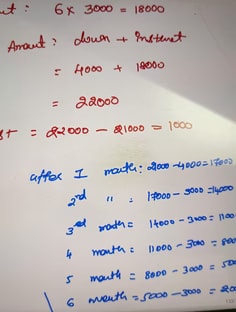 : 6 x 3000 = 18000
Amount : down + Instment
= 4000 + 18000
= 22000
= 22000 - 21000 = 1000
after I month: 21000 - 4000 = 17000
2nd " : 17000 - 3000 = 14000
3rd month = 14000 - 3000 = 1100
4 month = 11000 - 3000 = 800
5 month = 8000 - 3000 = 500
6 month = 5000 - 3000 = 200